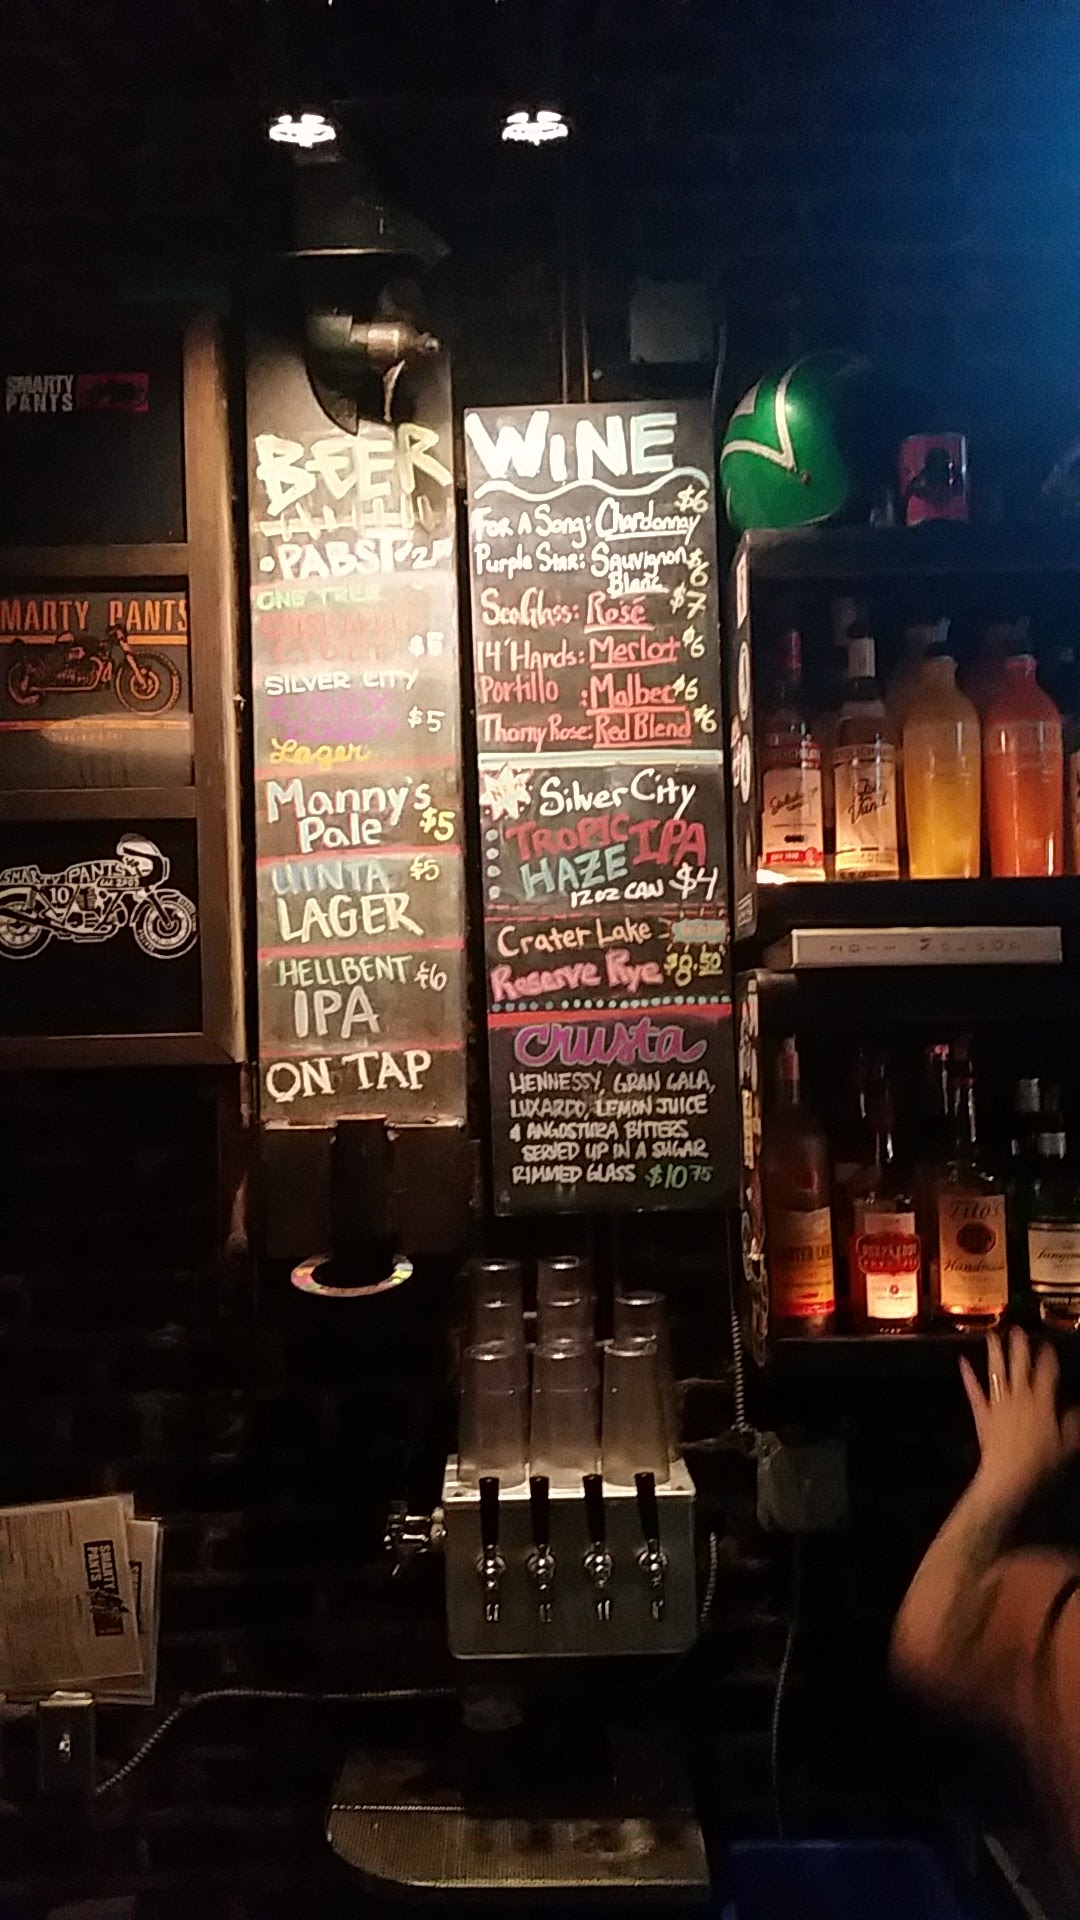 SMARTY
PANTS
SMARTY PANTS
SMARTY PANTS
10
BEER
• PABST
ONE TREE
$5
SILVER CITY
$5
Lager
Manny's
Pale $5
UINTA $5
LAGER
HELLBENT $6
IPA
ON TAP
WINE
$6
For A Song: Chardonnay
Purple Star: Sauvignon $6
Blanc
SeaGlass: Rosé $7
14 Hands: Merlot $6
Portillo : Malbec $6
Thorny Rose: Red Blend $6
Silver City
TROPIC IPA
HAZE
12 OZ CAN $4
Crater Lake
Reserve Rye $8.50
Crusta
HENNESSY, GRAN GALA,
LUXARDO, LEMON JUICE
& ANGOSTURA BITTERS
SERVED UP IN A SUGAR
RIMMED GLASS $10 75
Tito's
Handmade
SMARTY
PANTS